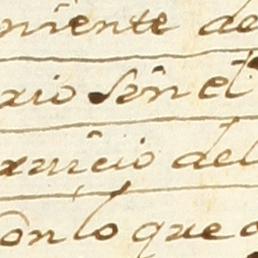 niente de
xio sin el
xuicio del
con lo que